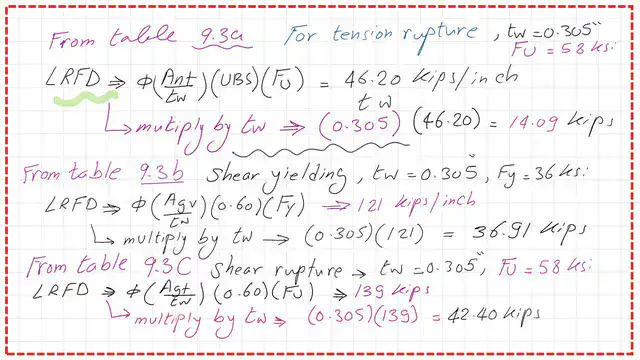 From table 9.3a For tension rupture, tw=0.305"
FU = 58 ksi
LRFD ⇒ Φ(Ant/tw)(UBS)(FU) = 46.20 kips/inch
tw
↳ mutiply by tw ⇒ (0.305) (46.20) = 14.09 kips
From table 9.3b shear yielding, tw=0.305", Fy=36 ksi
LRFD → Φ(Agv/tw)(0.60)(Fy) ⇒ 121 kips/inch
↳ multiply by tw → (0.305)(121) = 36.91 kips
From table 9.3C shear rupture → tw=0.305", FU=58 ksi
LRFD ⇒ Φ(Agt/tw)(0.60)(FU) ⇒ 139 kips
↳ multiply by tw ⇒ (0.305)(139) = 42.40 kips